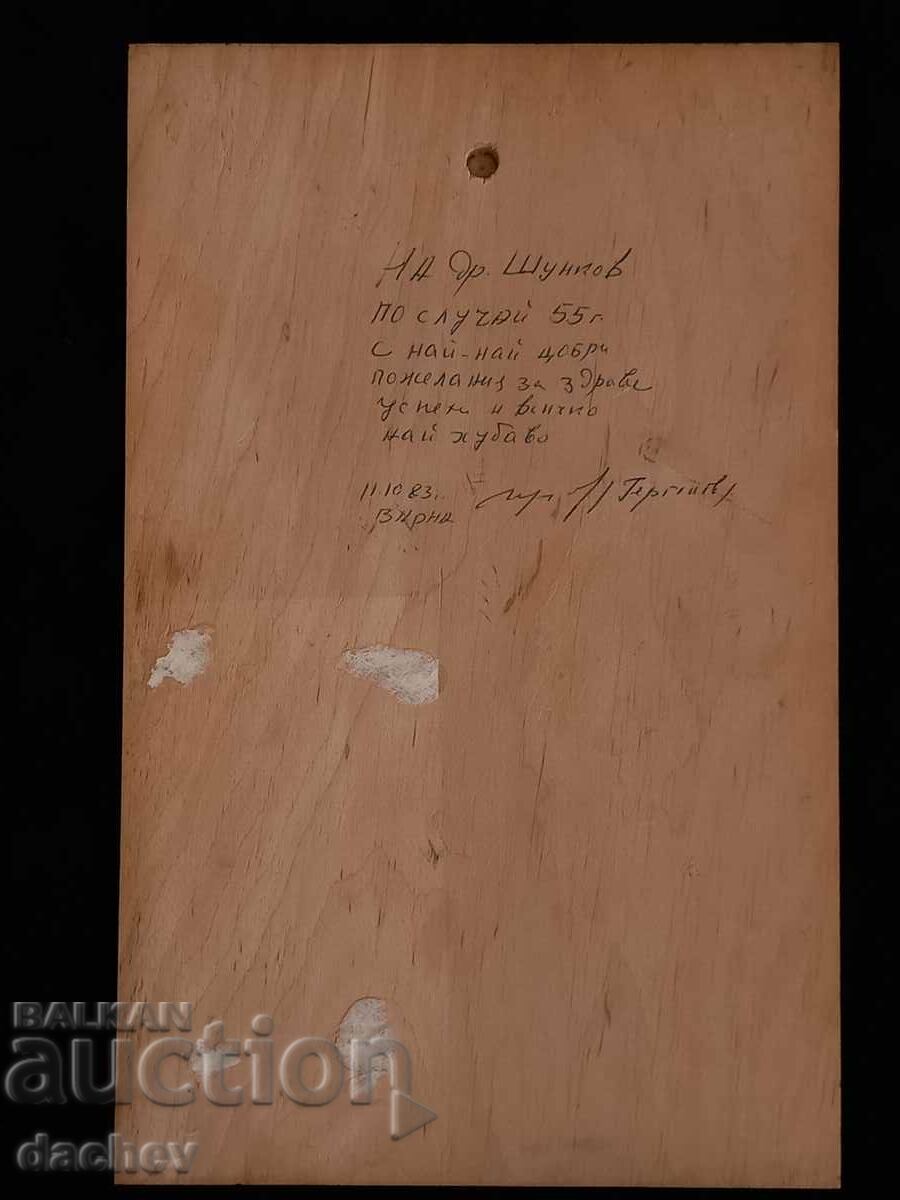 НА др. Шунков
по случай 55г.
с най-най добри
пожелания за здраве
успехи и всичко
най хубаво
11.10 83г.
Варна
BALKAN
auction
dachev